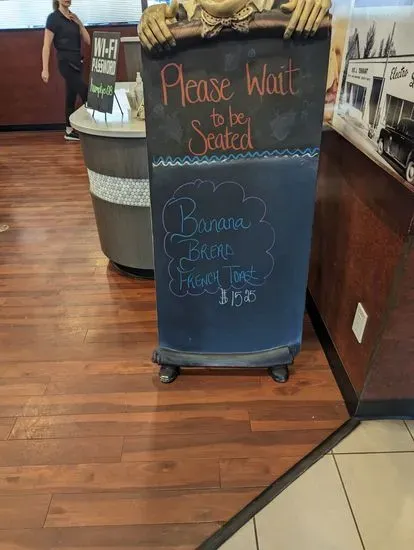 WI-FI
PASSWORD
Please Wait
to be
Seated
Banana
Bread
French Toast
$15.25
Electric